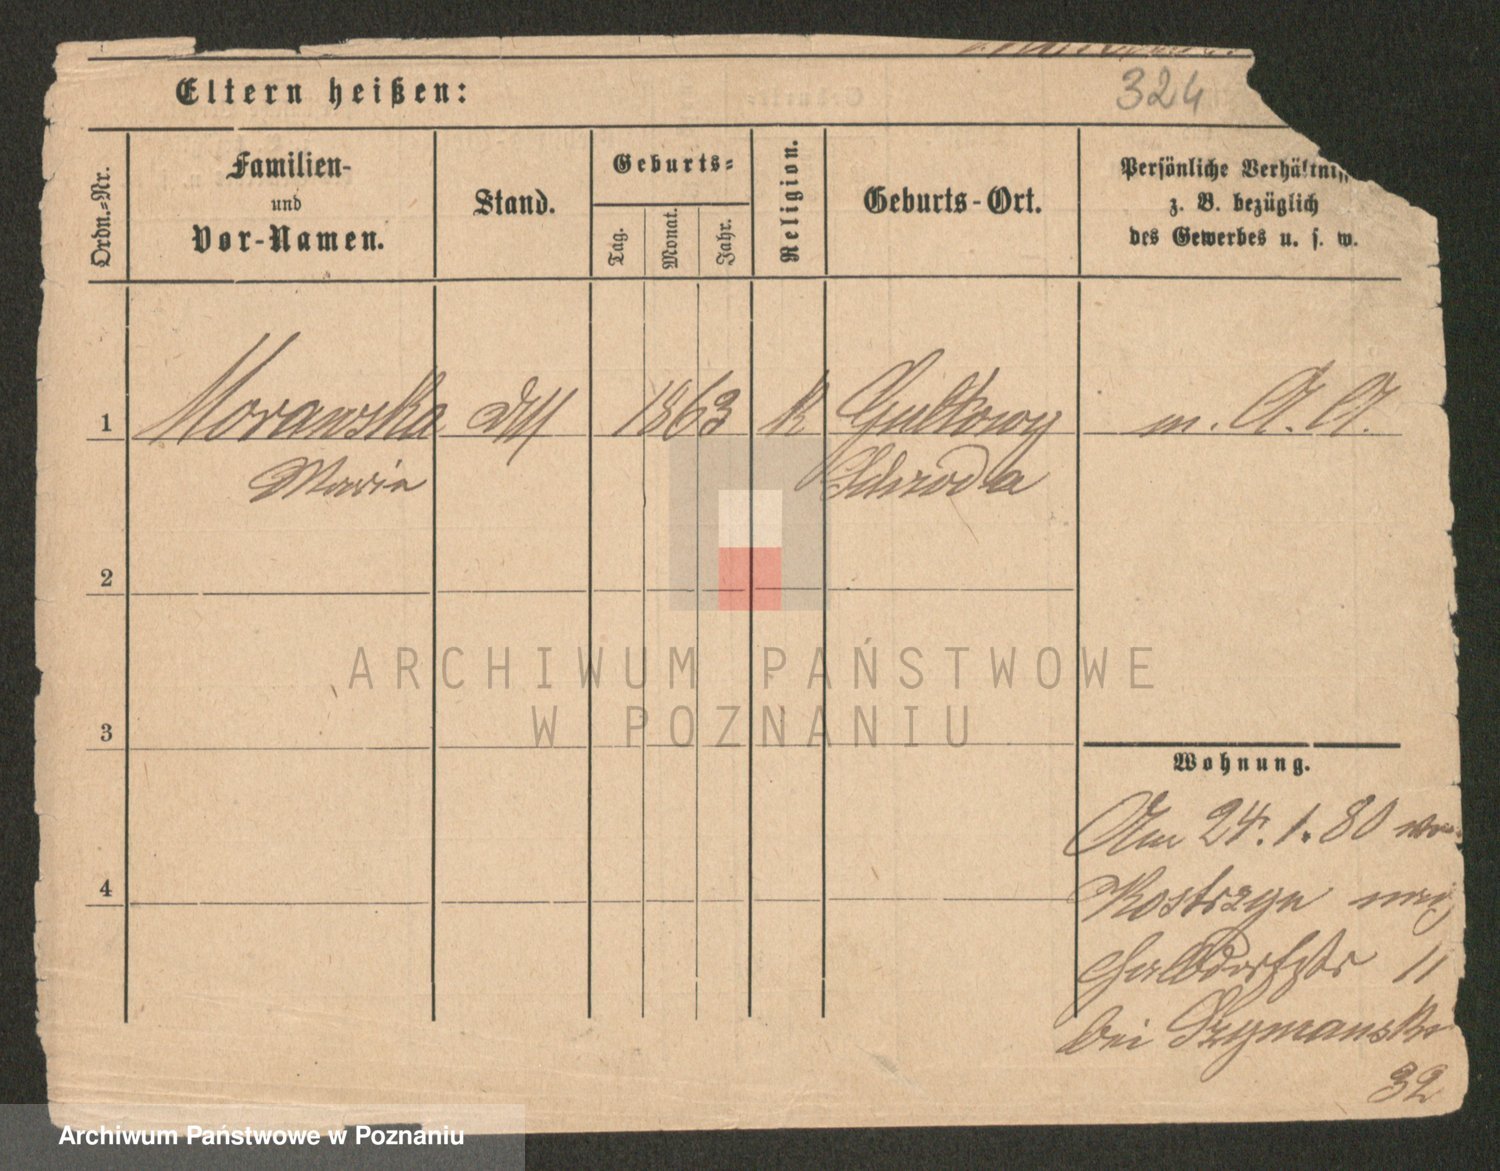 324
Eltern heißen:
Ordn.-Nr.
Familien-
und
Vor-Namen.
Stand.
Geburts-
Tag.
Monat.
Jahr.
Religion.
Geburts-Ort.
Persönliche Verhältniss
z. B. bezüglich
des Gewerbes u. s. w.
1 Morawska 1863 K Gultowy m. A. A.
Marie Schroda
2
3
4
Wohnung.
Am 24.1.80 von
Kostrzyn nach
Halbdorfstr 11
bei Szymanski
32
ARCHIWUM PAŃSTWOWE
W POZNANIU
Archiwum Państwowe w Poznaniu